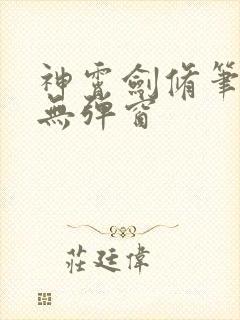 神霄劍脩筆
無彈窗
莊廷偉